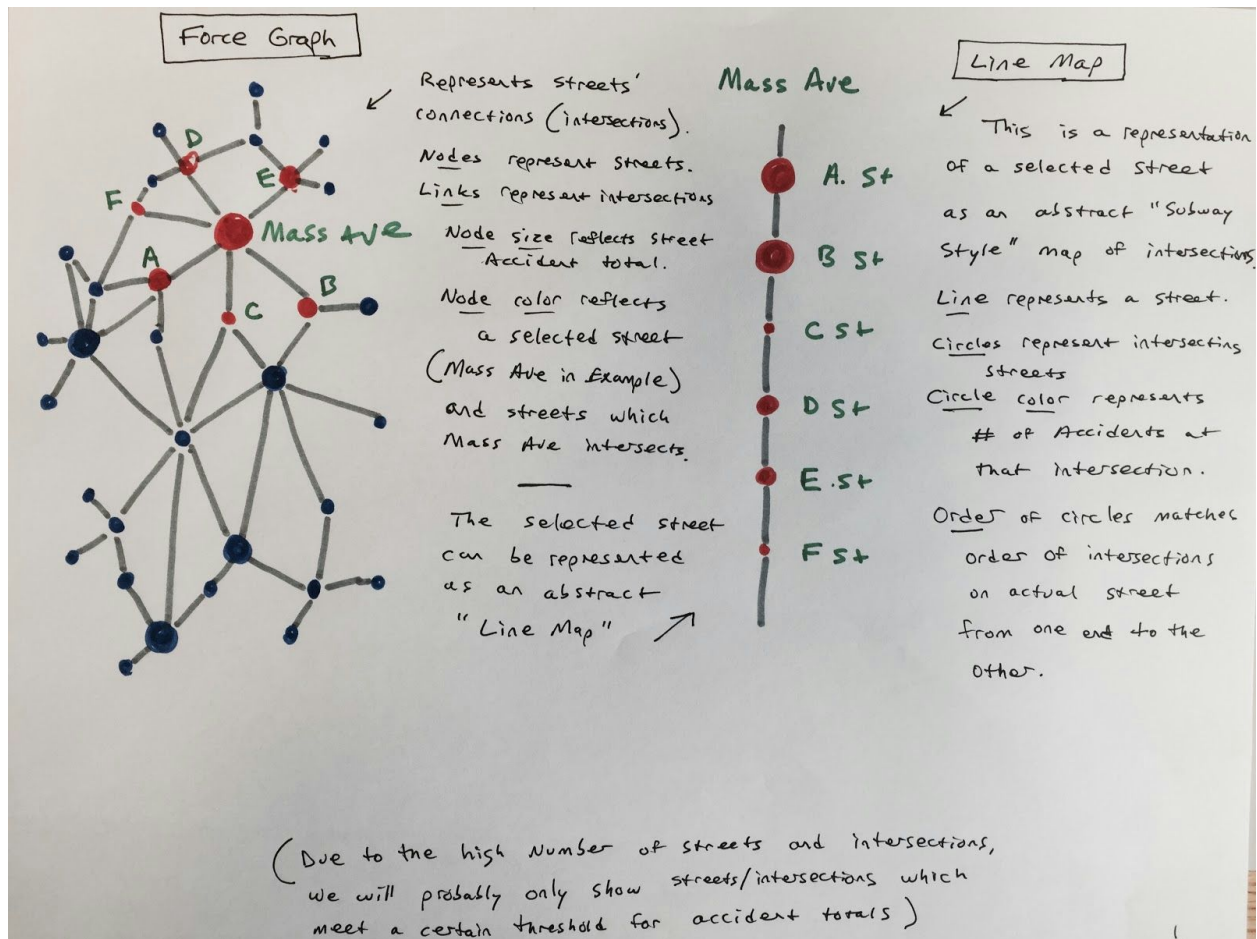 Force Graph
D
E
F
Mass Ave
A
B
C
Represents streets'
connections (intersections).
Nodes represent streets.
Links represent intersections
Node size reflects street
Accident total.
Node color reflects
a selected street
(Mass Ave in Example)
and streets which
Mass Ave intersects.
The selected street
can be represented
as an abstract
"Line Map"
Mass Ave
A. St
B St
C St
D St
E. St
F St
Line Map
This is a representation
of a selected street
as an abstract "Subway
Style" map of intersections.
Line represents a street.
Circles represent intersecting
streets
Circle color represents
# of Accidents at
that intersection.
Order of circles matches
order of intersections
on actual street
from one end to the
other.
(Due to the high number of streets and intersections,
we will probably only show streets/intersections which
meet a certain threshold for accident totals)